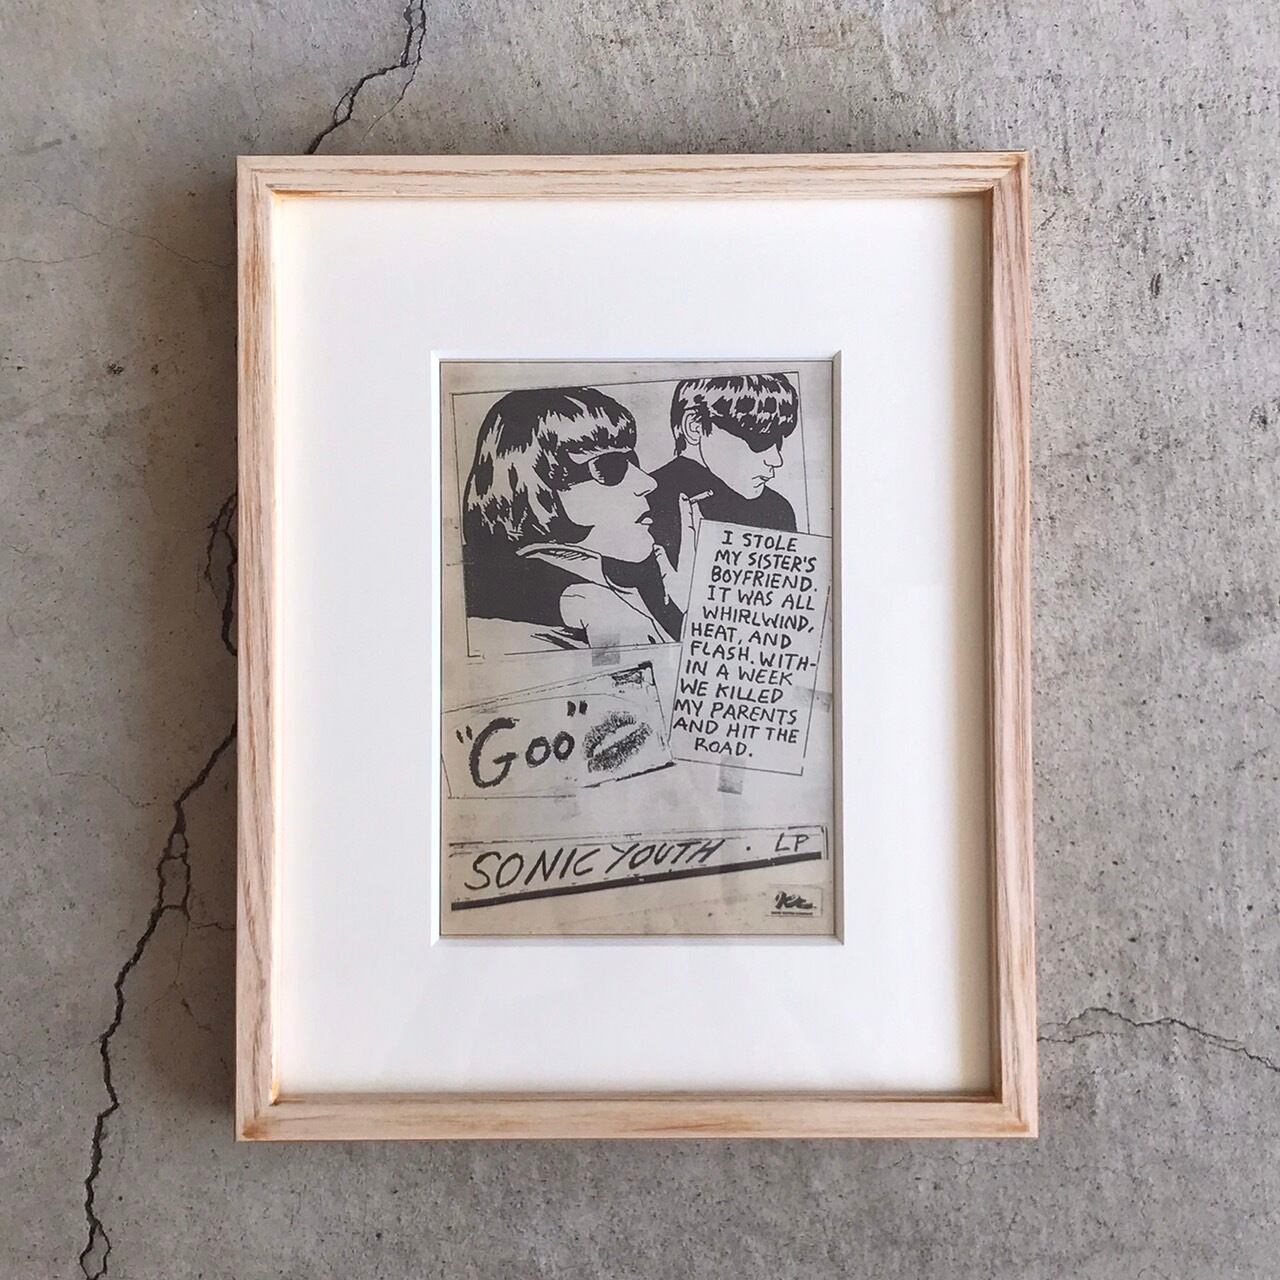 I STOLE
MY SISTER'S
BOYFRIEND.
IT WAS ALL
WHIRLWIND,
HEAT, AND
FLASH. WITH-
IN A WEEK
WE KILLED
MY PARENTS
AND HIT THE
ROAD.
"Goo"
SONIC YOUTH · LP